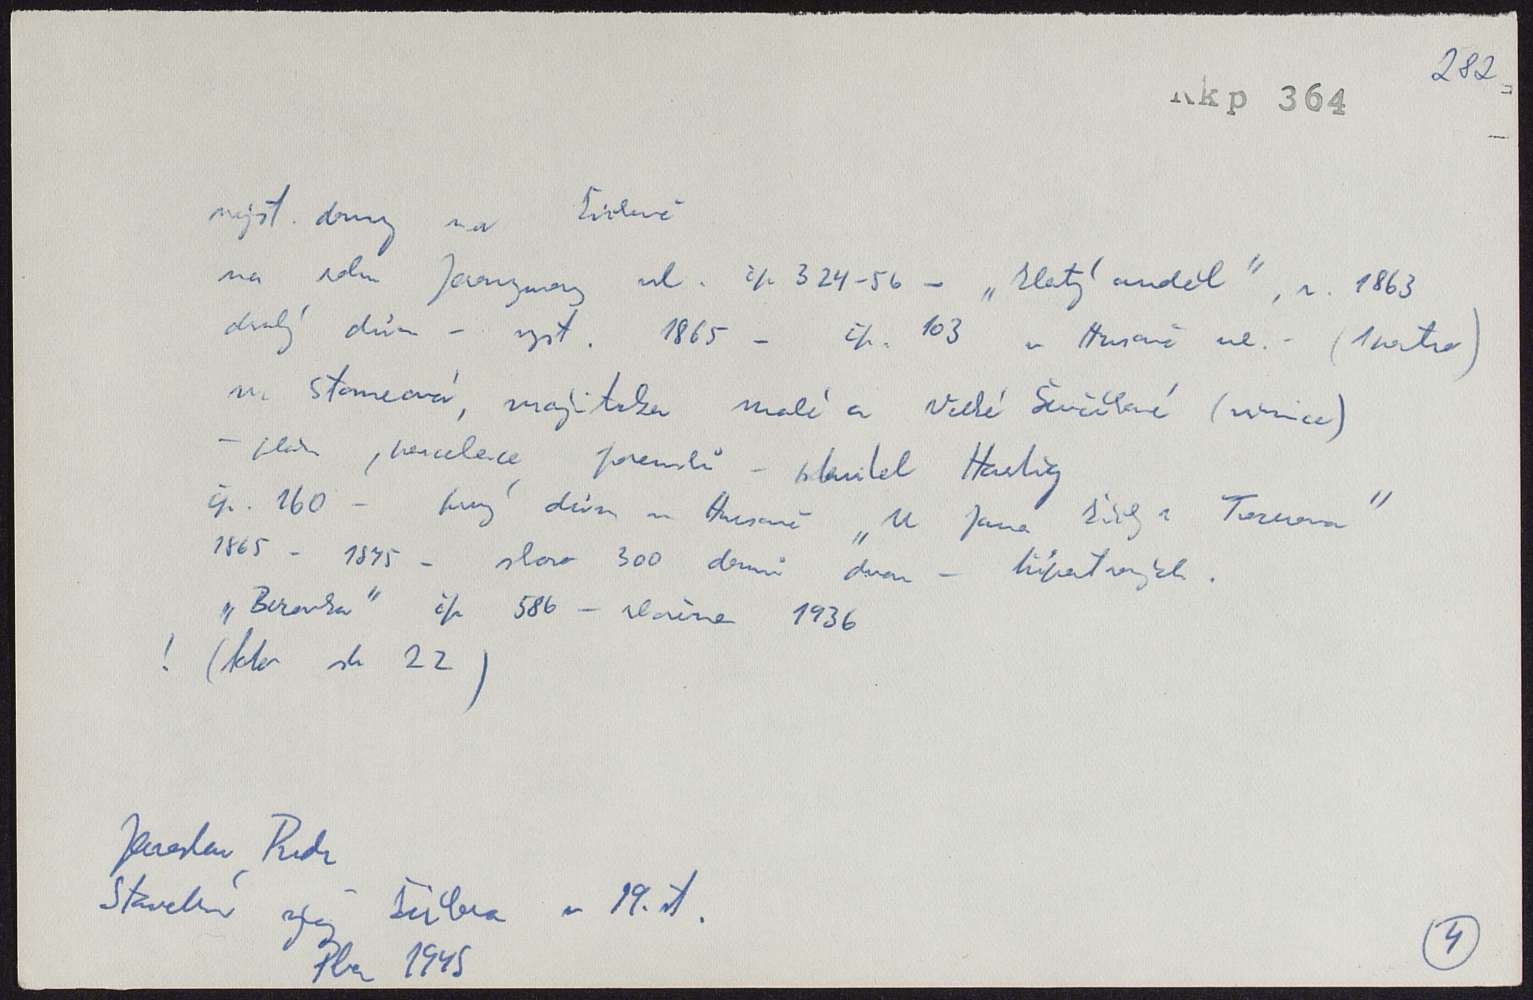 282
Rkp 364
nejst. domy na Žižkově
na rohu Jeronymovy ul. čp. 324-56 – „Zlatý anděl", r. 1863
druhý dům – vyst. 1865 – čp. 103 v Husově ul. – (1 patro)
Stomeová, majitelka malé a velké Ševčíkové (vinice)
– plán, parcelace pozemků – stavitel Hartig
čp. 160 – prvý dům v Husově „U Jana Žižky z Trocnova"
1865 – 1875 – skoro 300 domů dvou – třípatrových.
„Bezovka" čp 586 – zbořena 1936
! (foto str 22)
Jaroslav
Stavební vývoj Žižkova v 19. st.
Pha 1945
4